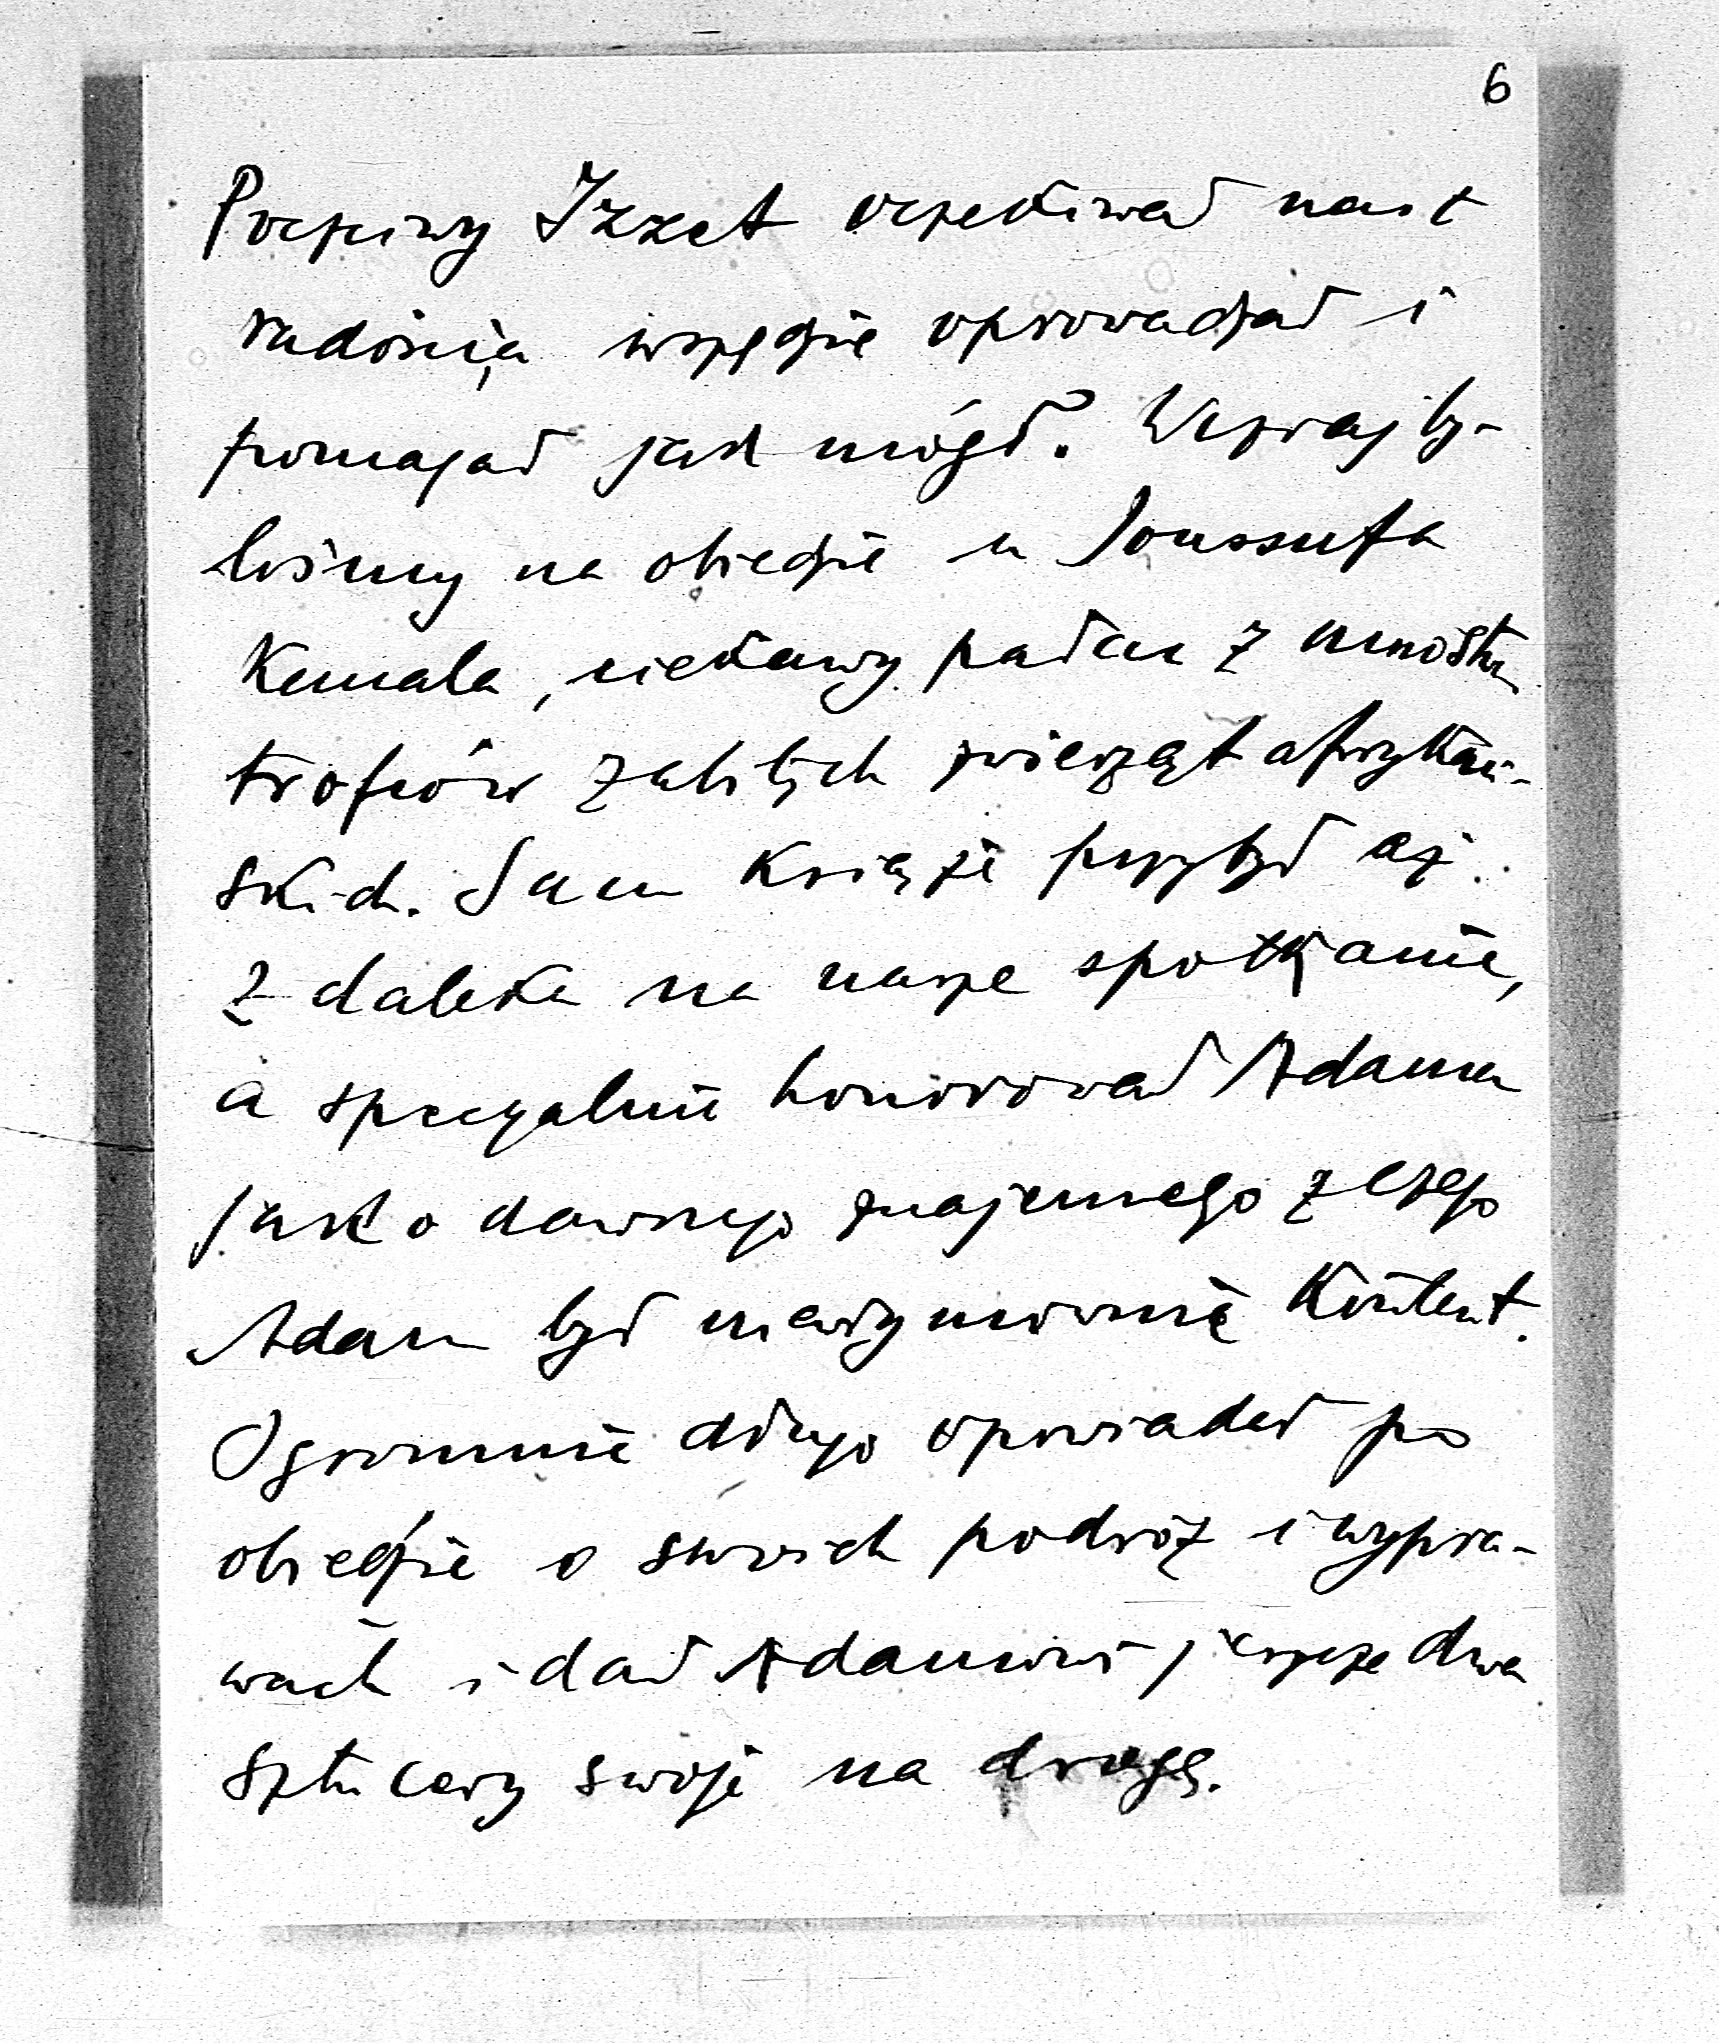 6
Poczciwy Izzet oczekiwał nas z
radością wszędzie oprowadzał i
pomagał jak mógł. Wczoraj by-
liśmy na obiedzie u Joussufa
Kemala, ciekawy pałac z mnóstw
trofeów zabitych zwierząt afrykań-
skich. Sam książe przybył aż
z daleka na nasze spotkanie,
a specyalnie honorował Adama
jako dawnego znajomego z czego
Adam był niewymownie kontent.
Ogromnie długo opowiadał po
obiedzie o swoich podróż i wypra-
wach i dał Adamowi jeszcze dwa
sztucery swoje na drogę.